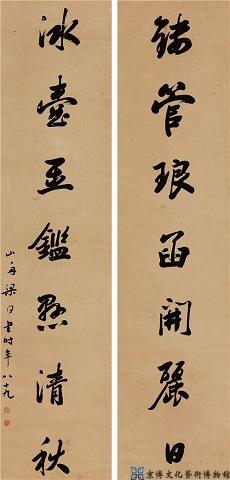 鏤管琅函開麗日
冰壺玉鑑懸清秋
山舟梁同書時年八十九
京博文化藝術博物館